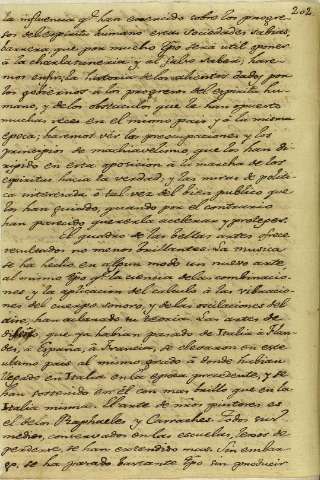 202
la influencia qe han exercido sobre los progre-
sos del espiritu humano estas Sociedades sabias,
barrera que por mucho tpo sera util oponer
à la charlataneria y al falso saber; hare-
mos enfin, la historia de los alientos dados por
los gobiernos à los progresos del espiritu hu-
mano, y de los obstaculos que le han opuesto
muchas veces en el mismo pais y à la misma
epoca; haremos vér las preocupaciones y los
principios de machiavelismo que los han di-
rigido en esta oposicion à la marcha de los
espiritus hacia la verdad; y las miras de politi-
ca interesada ò tal vez del bien publico que
los han guiado, quando por el contrario
han parecido quererla acelerar y proteger.
El quadro de las bellas artes ofrece
resultados no menos brillantes. La musica
se ha hecho en algun modo un nuevo arte,
al mismo tpo qe la ciencia de las combinacio-
nes y la aplicacion del calculo à las vibracio-
nes del cuerpo sonoro, y de las oscilaciones del
aire, han aclarado su teoria. Las artes de
diseño que ya habian pasado de Italia à Flan-
des, à España, à Francia, se elevaron en este
ultimo pais al mismo grado à donde habian
llegado en Italia en la epoca precedente, y se
han sostenido en él con mas brillo que en la
Italia misma. El arte de nros pintores es
el de los Raphaeles y Carraches. Todos sus
medios, conservados en las escuelas, lexos de
perderse, se han extendido mas. Sin embar-
go, se ha pasado bastante tpo sin producir